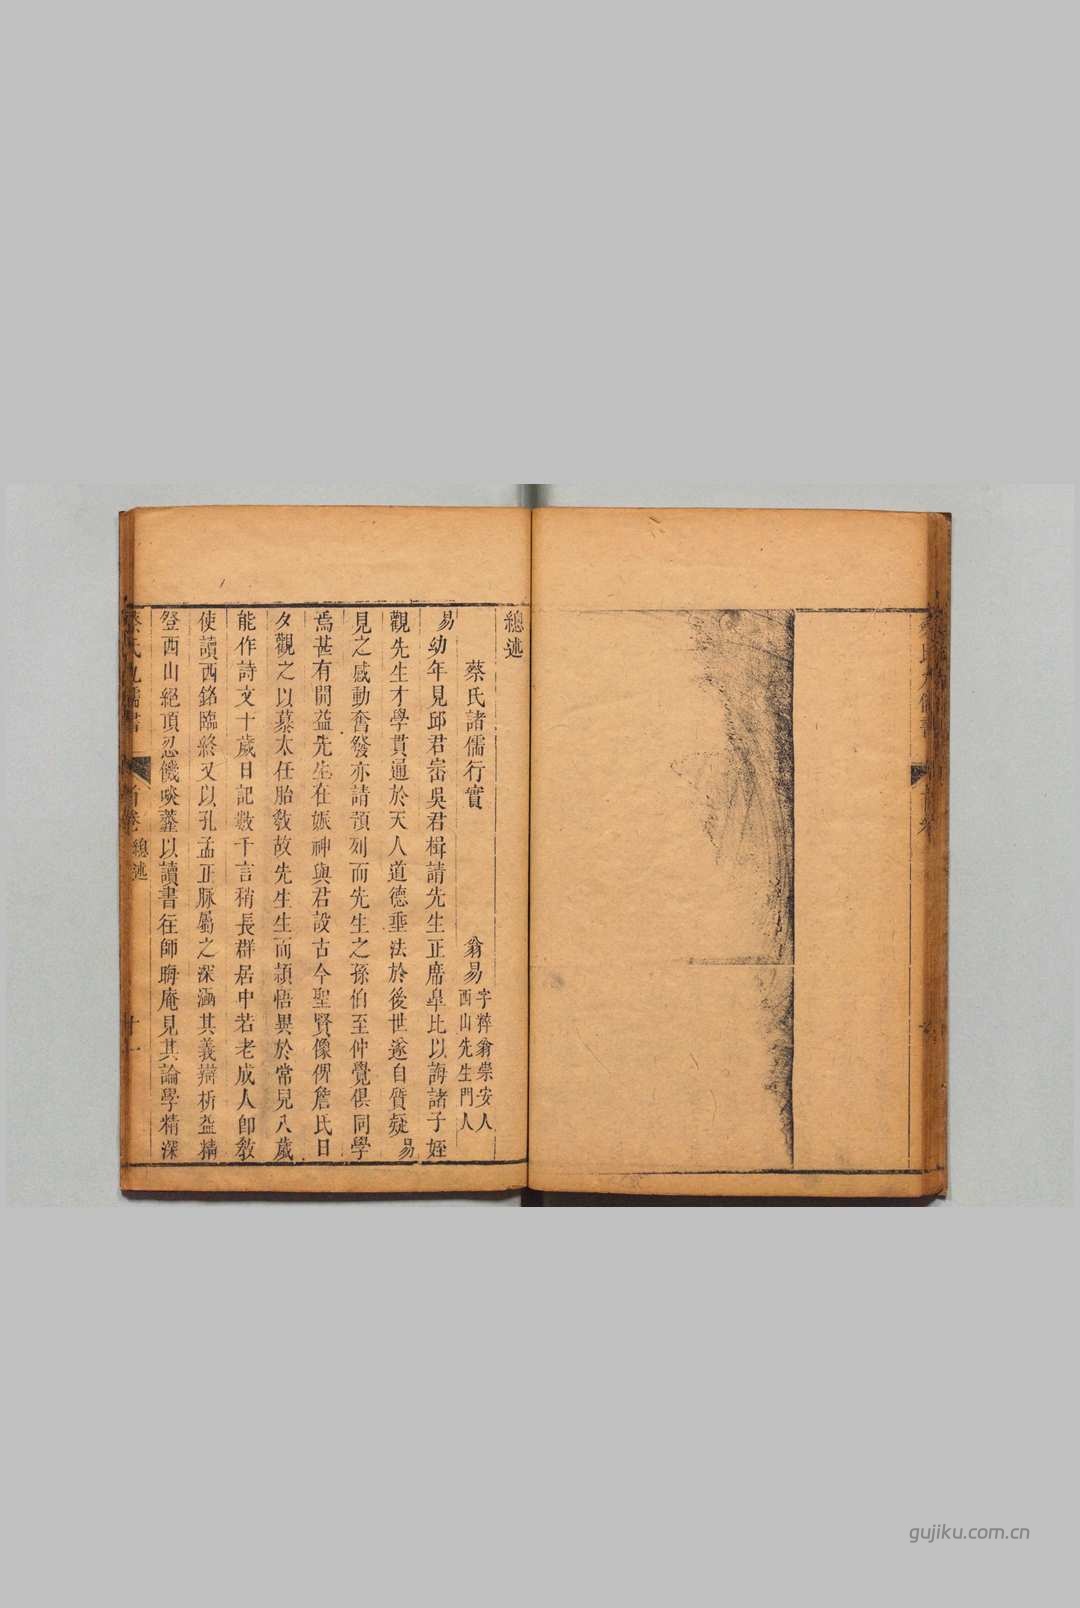 總述
蔡氏諸儒行實 翁易 字粹翁崇安人
西山先生門人
易幼年見邱君崈吳君楫請先生正席皐比以誨諸子姪
觀先生才學貫通於天人道德垂法於後世遂自質疑易
見之感動奮發亦請預列而先生之孫伯至仲覺俱同學
焉甚有開益先生在娠神與君設古今聖賢像俾詹氏日
夕觀之以慕太任胎敎故先生生而頴悟異於常兒八歲
能作詩文十歲日記數千言稍長群居中若老成人卽敎
使讀西銘臨終又以孔孟正脉屬之深涵其義辯析益精
登西山絕頂忍饑啖虀以讀書徃師晦庵見其論學精深
蔡氏九儒書 首卷 總述 十一
gujiku.com.cn